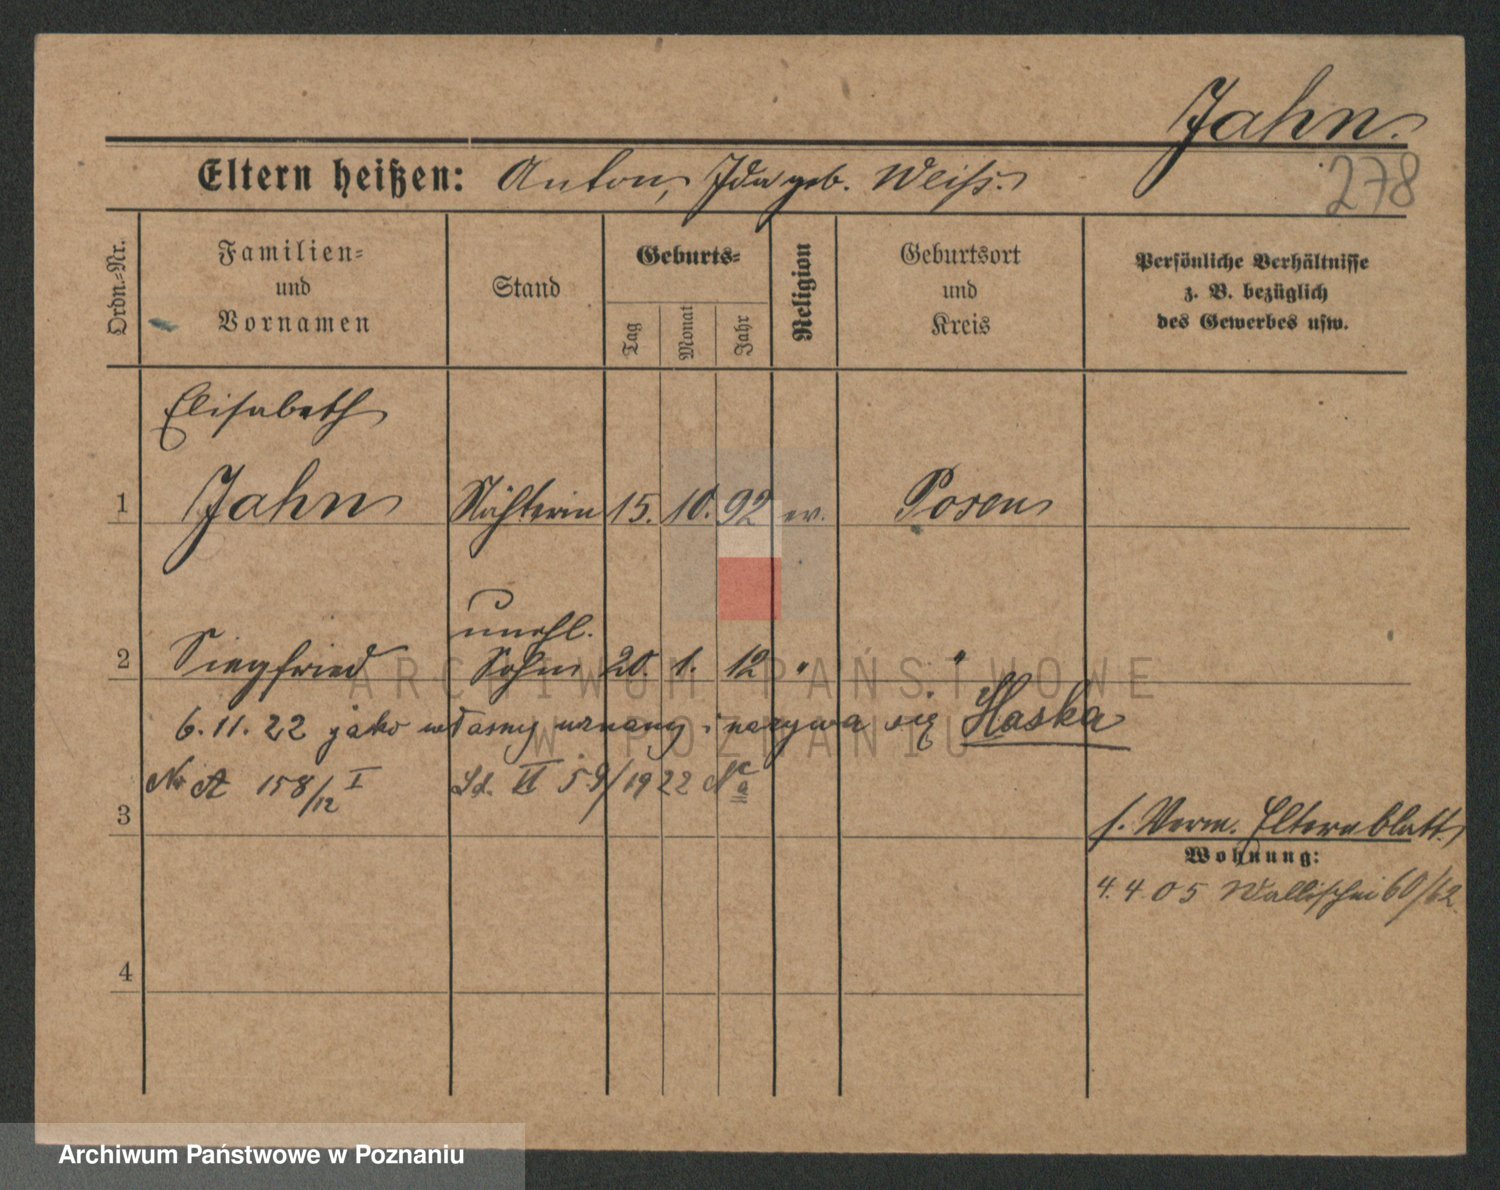 Jahn.
278
Eltern heißen: Anton, Ida geb. Weiss.
Ordn.-Nr.
Familien-
und
Vornamen
Stand
Geburts-
Tag
Monat
Jahr
Religion
Geburtsort
und
Kreis
Persönliche Verhältnisse
z. B. bezüglich
des Gewerbes usw.
Elisabeth
1 Jahn Nähterin 15. 10. 92 ev. Posen
unehl.
2 Siegfried Sohn 20. 1. 12 " "
6.11.22 jako własny uznany i nazywa się Haska
Nr A 158/12 I
VI 59/1922
3
s. Verm. Elternblatt
Wohnung:
4.4.05 Wallischei 60/62.
4
ARCHIWUM PAŃSTWOWE
W POZNANIU
Archiwum Państwowe w Poznaniu